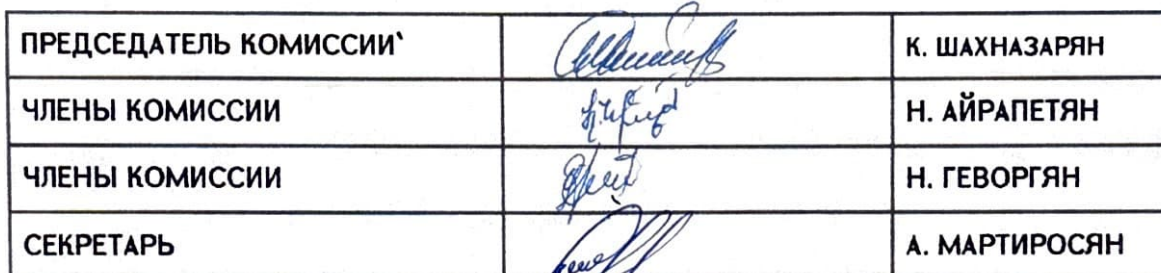 ПРЕДСЕДАТЕЛЬ КОМИССИИ՝ К. ШАХНАЗАРЯН
ЧЛЕНЫ КОМИССИИ Н. АЙРАПЕТЯН
ЧЛЕНЫ КОМИССИИ Н. ГЕВОРГЯН
СЕКРЕТАРЬ А. МАРТИРОСЯН